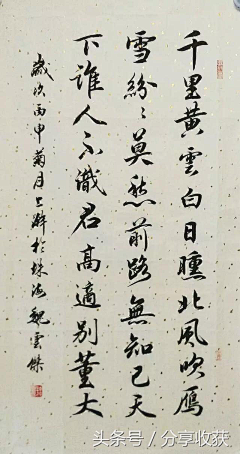 千里黄雲白日曛北風吹雁
雪紛〻莫愁前路無知己天
下誰人不識君高適别董大
歲次丙申菊月上澣於珠海魏雲傑
头条号／分享收获